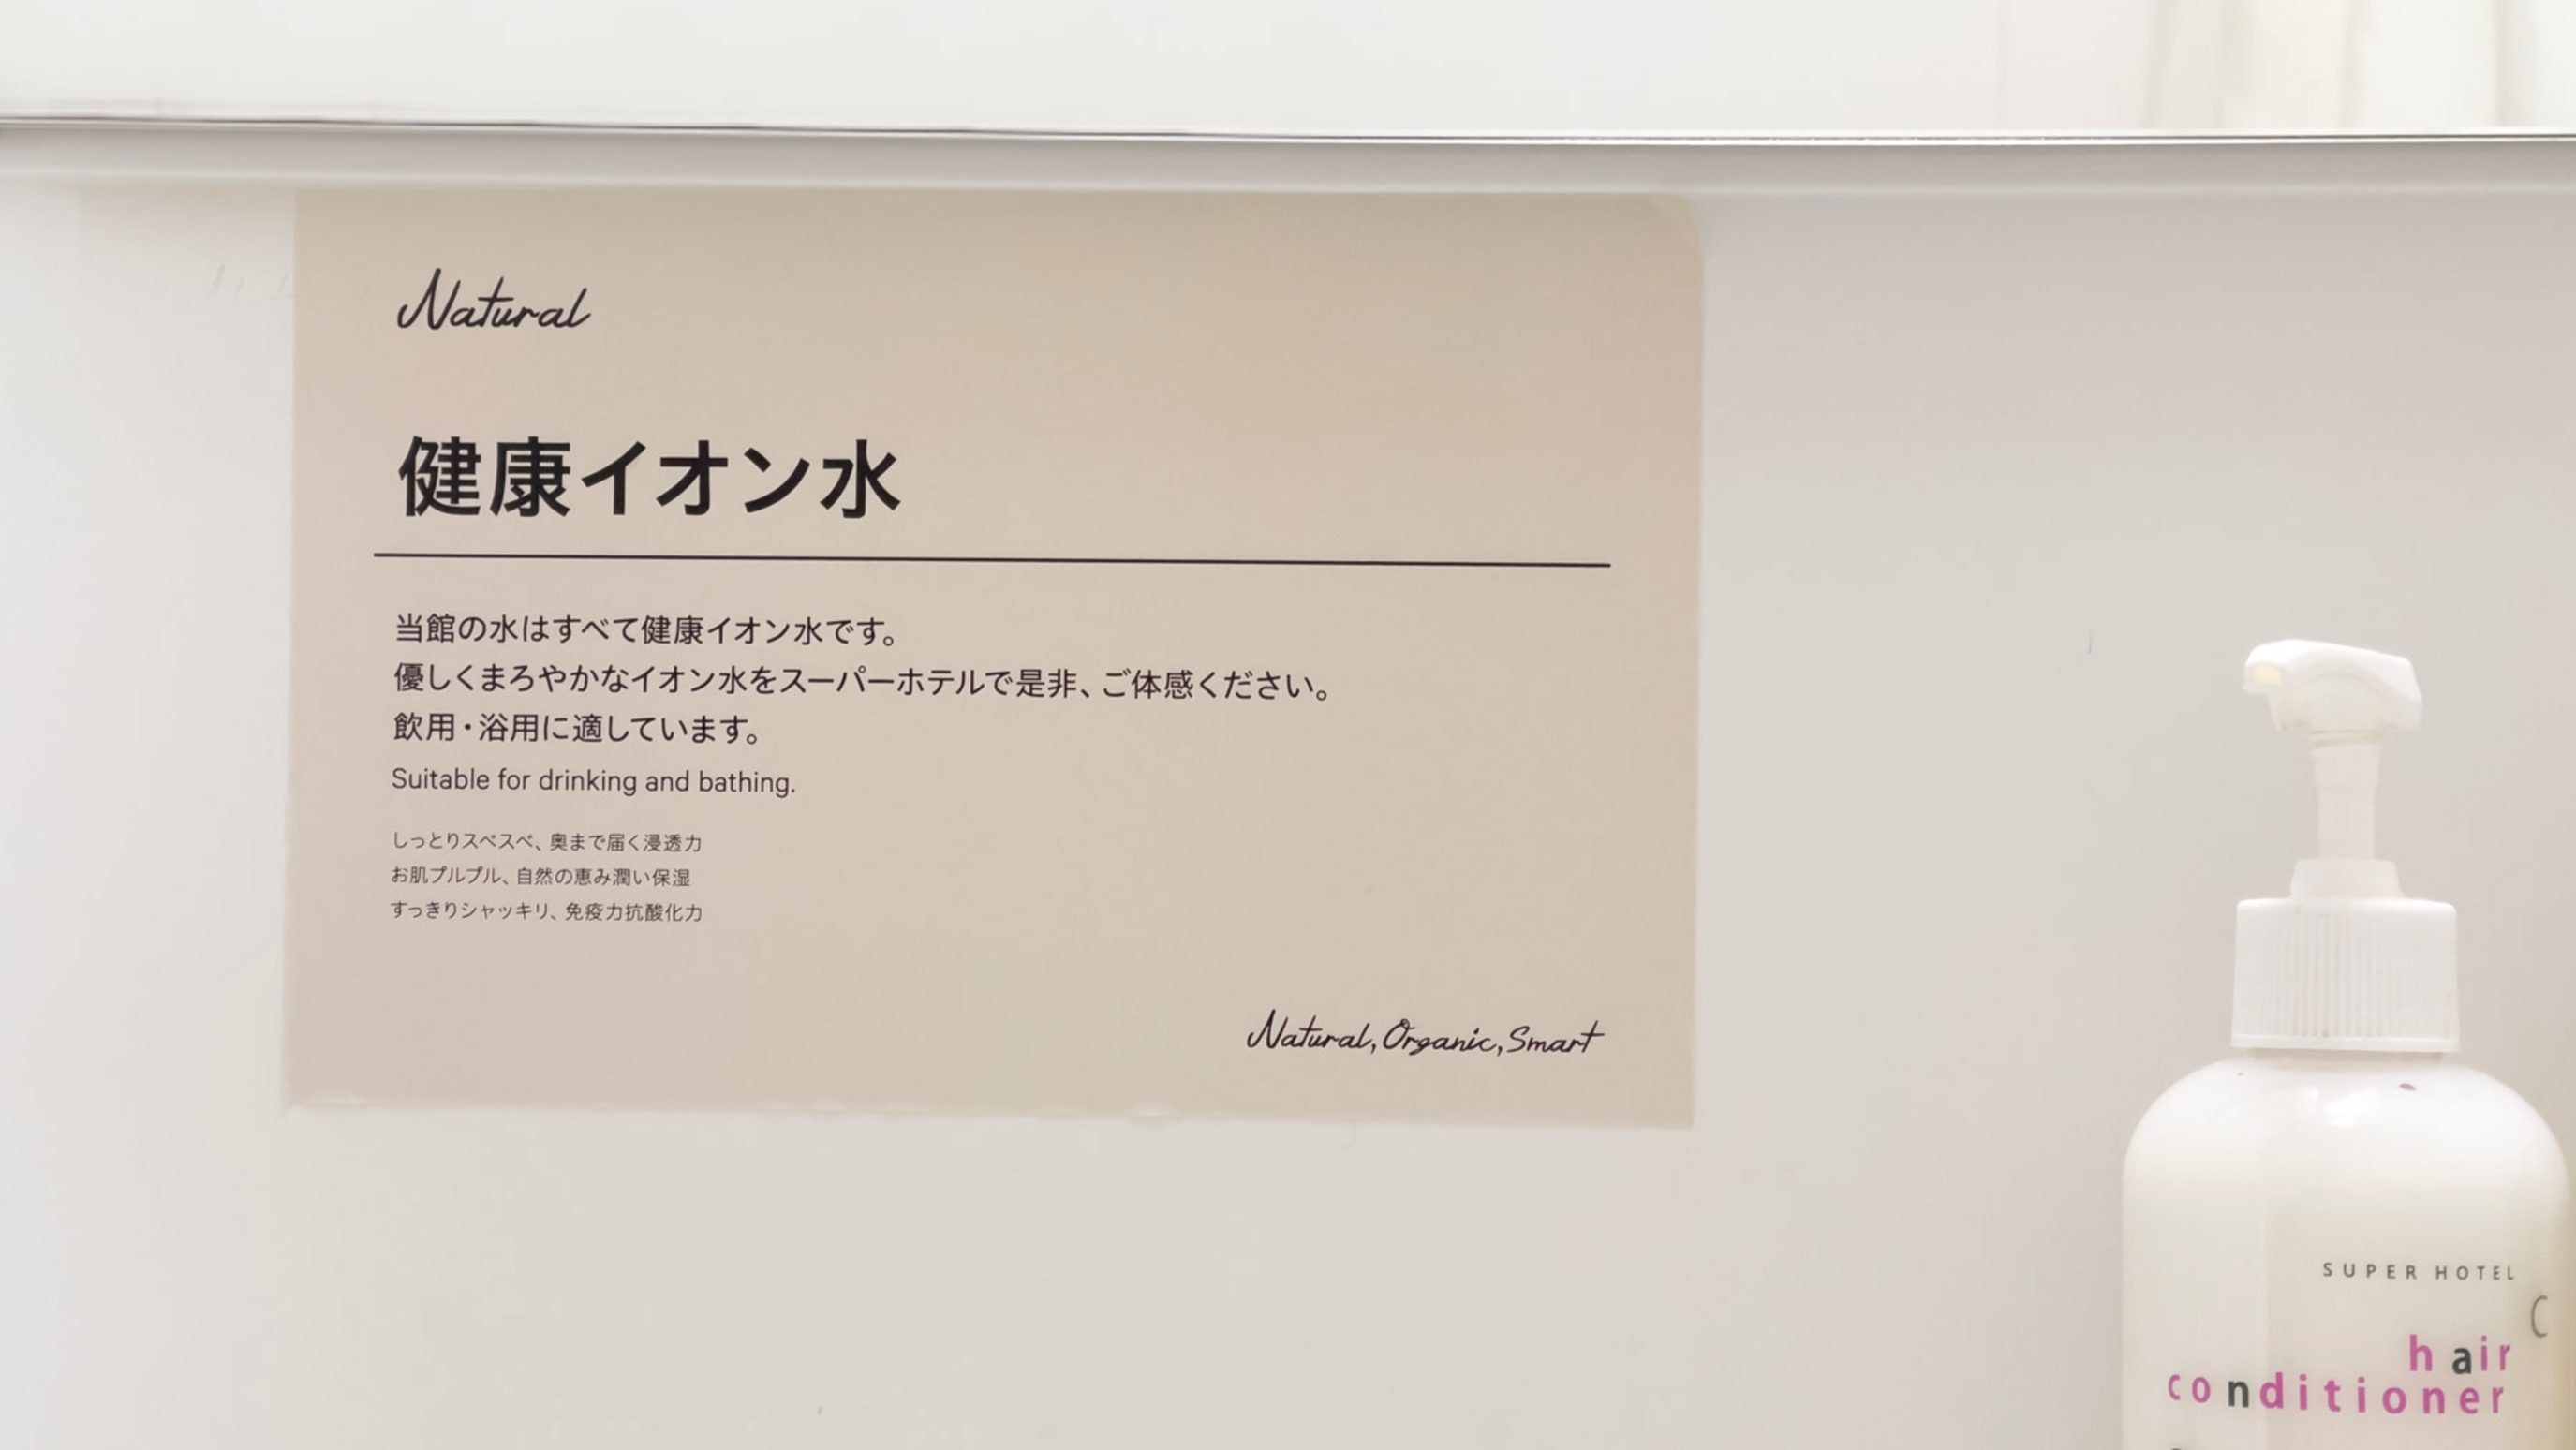 Natural
健康イオン水
当館の水はすべて健康イオン水です。
優しくまろやかなイオン水をスーパーホテルで是非、ご体感ください。
飲用・浴用に適しています。
Suitable for drinking and bathing.
しっとりスベスベ、奥まで届く浸透力
お肌プルプル、自然の恵み潤い保湿
すっきりシャッキリ、免疫力抗酸化力
Natural, Organic, Smart
SUPER HOTEL
hair
conditioner